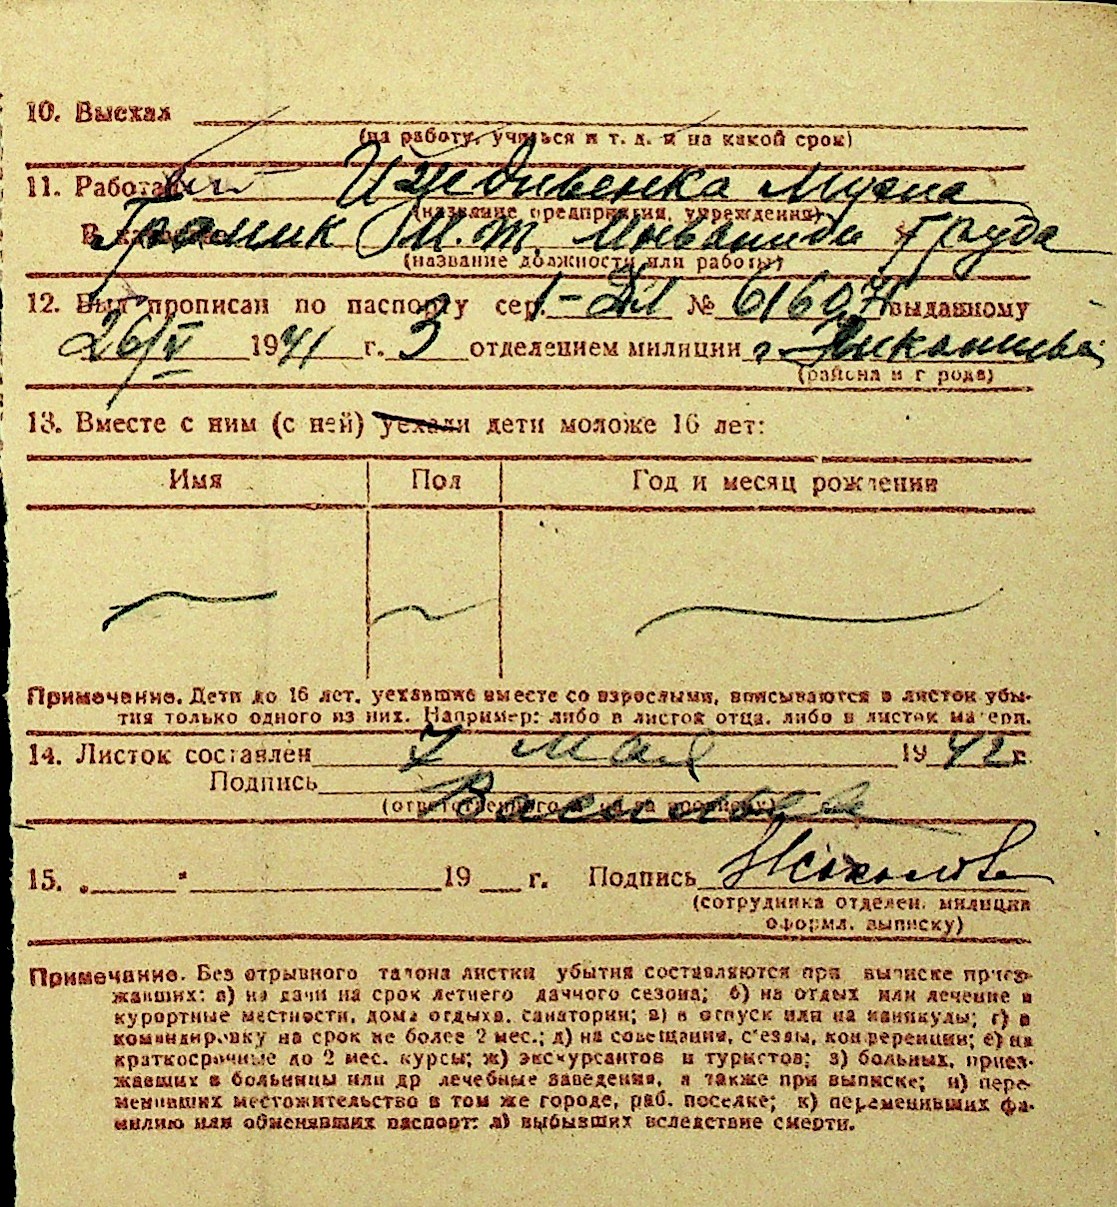 10. Выехал
(на работу, учиться и т. д. и на какой срок)
11. Работал Иждивенка мужа
(название предприятия, учреждения)
В качестве М. Т. Инвалида труда
(название должности или работы)
12. Был прописан по паспорту сер. № выданному
26/V 1941 г. 3 отделением милиции г.
(района и города)
13. Вместе с ним (с ней) уехали дети моложе 16 лет:
Имя Пол Год и месяц рождения
Примечание. Дети до 16 лет, уехавшие вместе со взрослыми, вписываются в листок убы-
тия только одного из них. Например: либо в листок отца, либо в листок матери.
14. Листок составлен 7 мая 1942 г.
Подпись Васильев
(ответственного за прописку)
15. „ " 19 г. Подпись Соколов
(сотрудника отделен. милиции
оформл. выписку)
Примечание. Без отрывного талона листки убытия составляются при выписке приез-
жавших: а) на дачи на срок летнего дачного сезона; б) на отдых или лечение в
курортные местности, дома отдыха, санатории; в) в отпуск или на каникулы; г) в
командировку на срок не более 2 мес.; д) на совещания, с'езды, конференции; е) на
краткосрочные до 2 мес. курсы; ж) экскурсантов и туристов; з) больных, приез-
жавших в больницы или др лечебные заведения, а также при выписке; и) пере-
менивших местожительство в том же городе, раб. поселке; к) переменивших фа-
милию или обменявших паспорт; л) выбывших вследствие смерти.